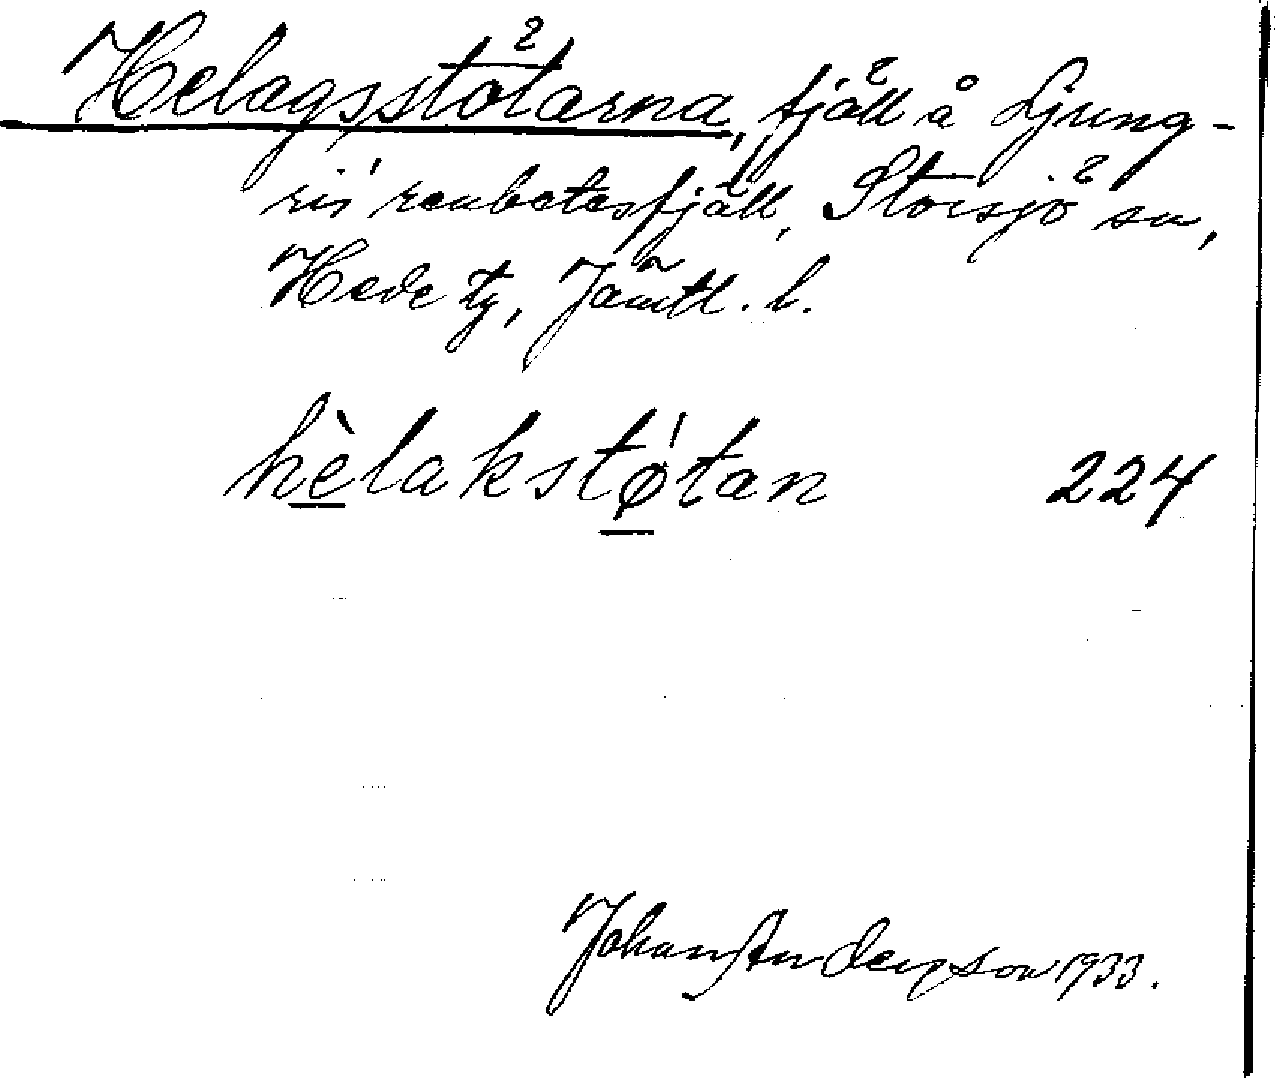 Helagsstötarna, fjäll å Ljung-
ris renbetesfjäll, Storsjö sn,
Hede tg, Jämtl. l.
hèlakstǿtan 224
Johan Anderson 1933.